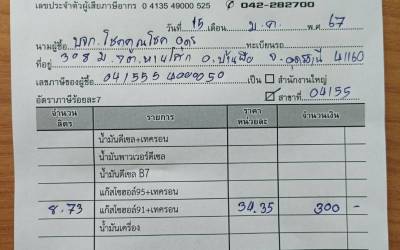 เลขประจำตัวผู้เสียภาษีอากร 0 4135 49000 525 042-282700
วันที่ 15 เดือน ม.ค. พ.ศ. 67
นามผู้ซื้อ บจก. โชคคูณโชค อุดร ทะเบียนรถ
ที่อยู่ 308 ม. 7 ต. หายโศก อ. บ้านผือ จ. อุดรธานี 41160
เลขภาษีของผู้ซื้อ 041555 4000050 เป็น สำนักงานใหญ่
อัตราภาษีร้อยละ7 สาขาที่ 04155
จำนวนลิตร รายการ ราคาหน่วยละ จำนวนเงิน
น้ำมันดีเซล+เทครอน
น้ำมันพาวเวอร์ดีเซล
น้ำมันดีเซล B7
แก๊สโซฮอล์95+เทครอน
8.73 แก๊สโซฮอล์91+เทครอน 34.35 300 -
น้ำมันเครื่อง